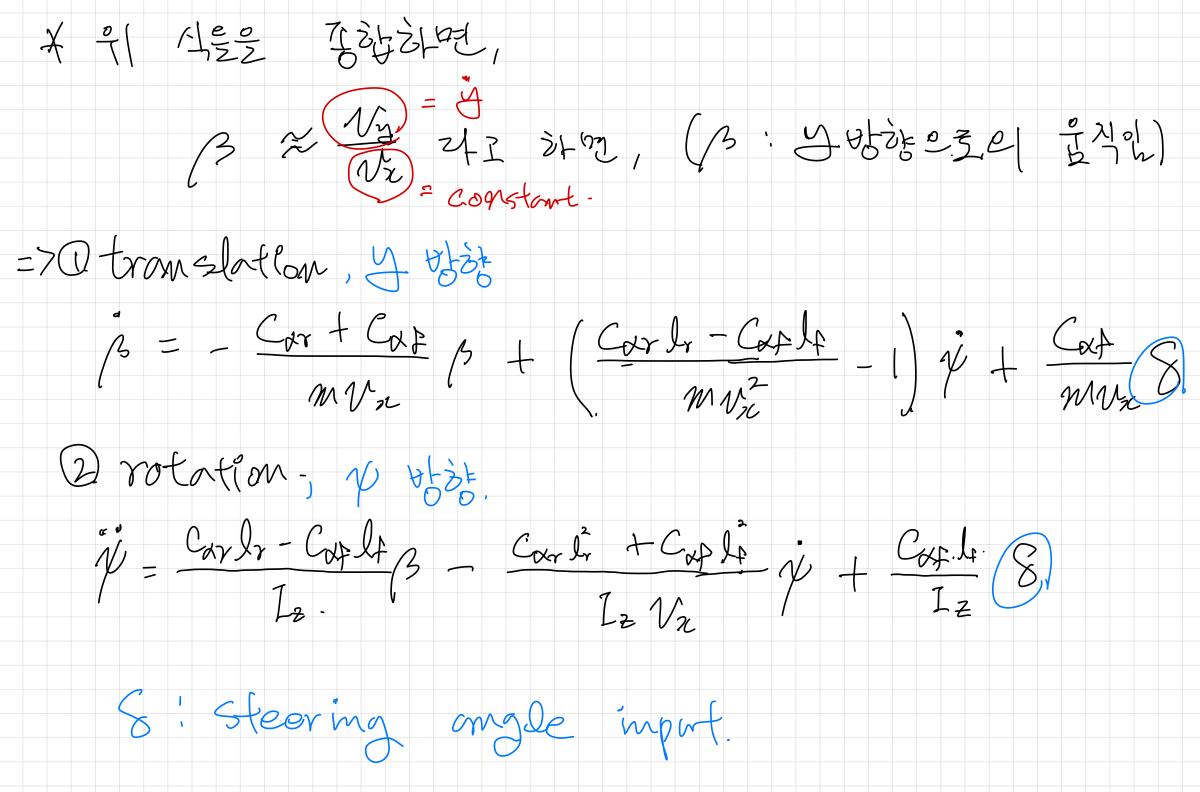 * 위 식들을 종합하면,
β ≈ v_y/v_x 라고 하면, (β : y 방향으로의 움직임)
= ẏ
= constant.
=> ① translation, y 방향
β̇ = - (C_αr + C_αf)/(m v_x) β + ((C_αr l_r - C_αf l_f)/(m v_x²) - 1) ψ̇ + C_αf/(m v_x) δ
② rotation ; ψ 방향.
ψ̈ = (C_αr l_r - C_αf l_f)/I_z. β - (C_αr l_r² + C_αf l_f²)/(I_z v_x) ψ̇ + (C_αf. l_f.)/I_z δ
δ : steering angle input.